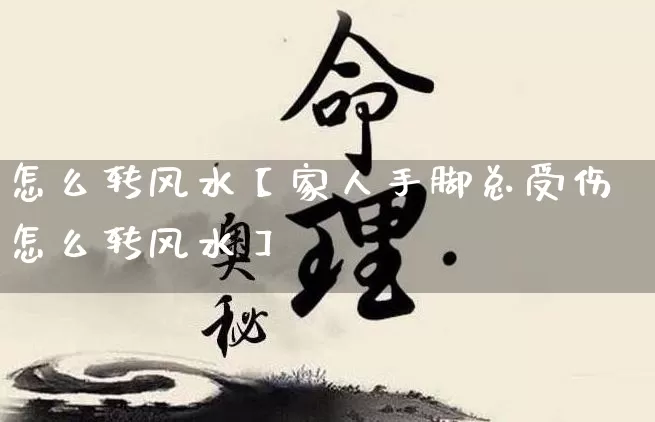 命理·
奥秘
怎么转风水【家人手脚总受伤
怎么转风水】